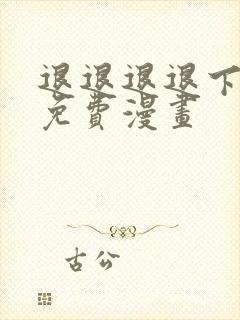 退退退退下
免費漫畫
古公